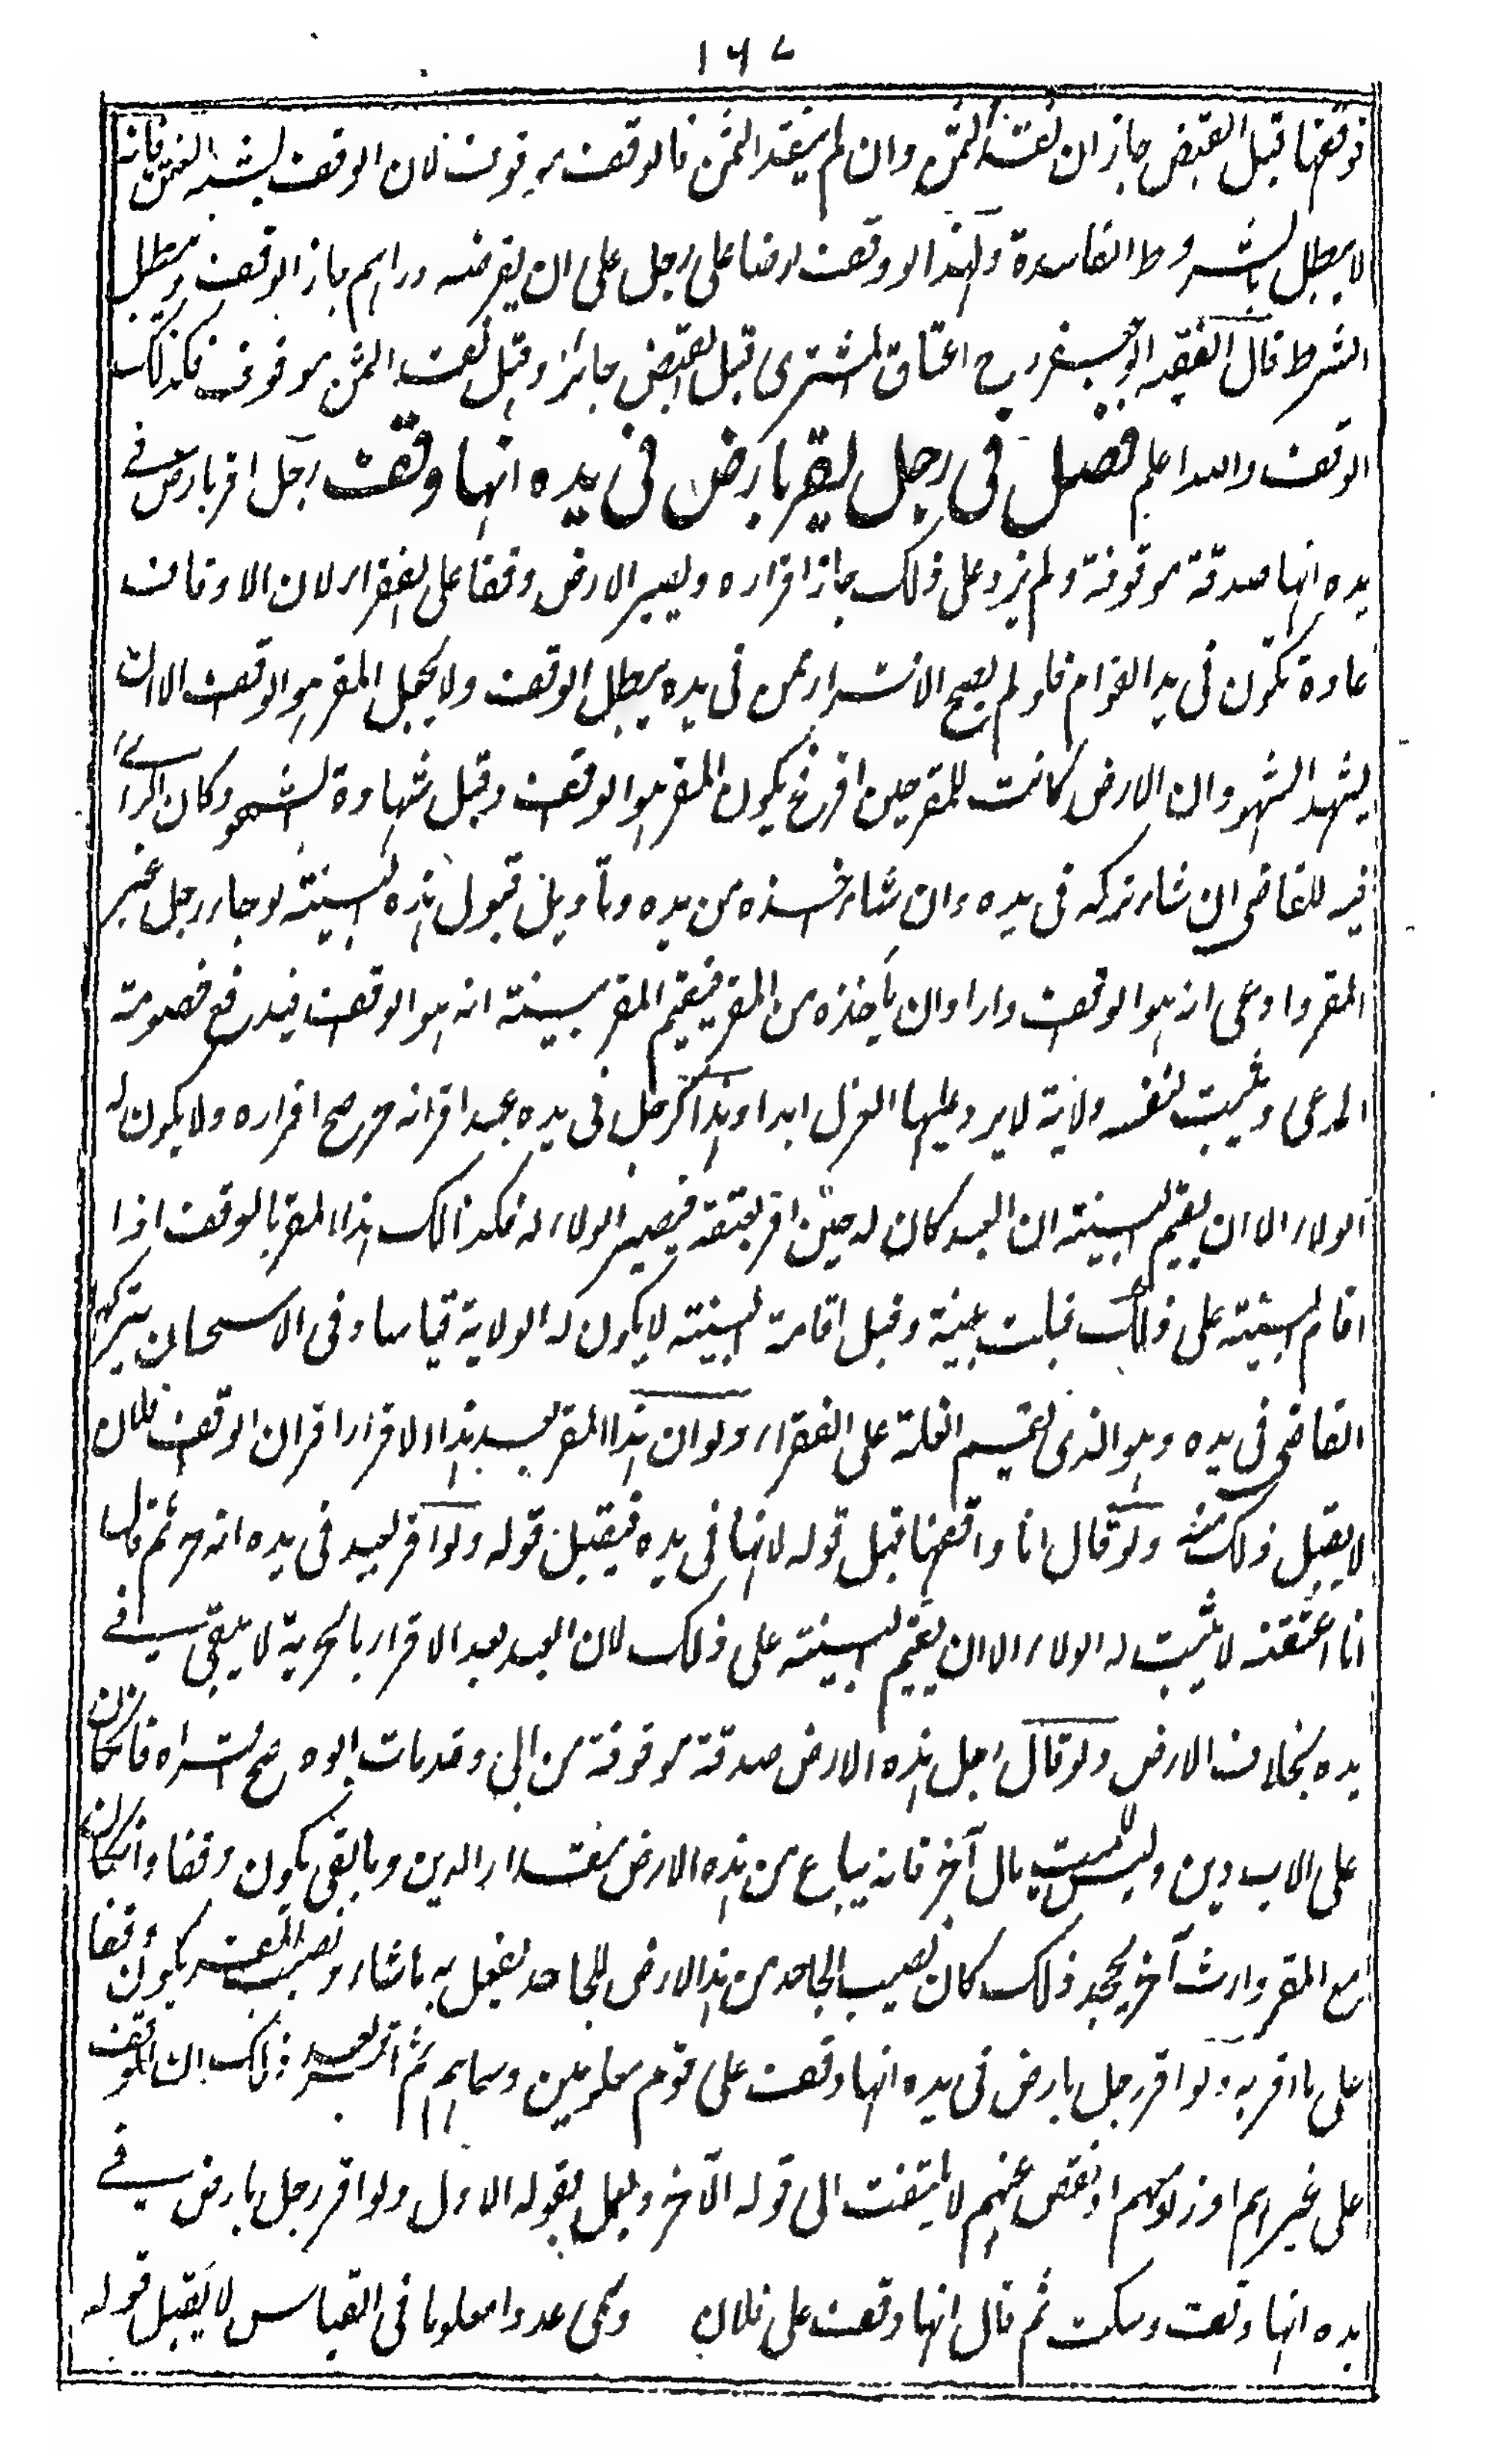 ١٦٧
فوقفها قبل القبض جاز ان نقد الثمن وان لم ينقد الثمن فالوقف موقوف لان الوقف يشبه العتق فانه
لا يبطل بالشروط الفاسدة ولهذا لو وقف ارضا على رجل على ان يقرضه دراهم جاز الوقف ويبطل
الشرط قال الفقيه ابو جعفر رح اعتاق المشترى قبل القبض جائز وقبل نقد الثمن موقوف فكذلك
الوقف والله اعلم فصل فى رجل يقر بارض فى يده انها وقف رجل اقر بارض فے
يده انها صدقة موقوفة ولم يزد على ذلك جاز اقراره ويصير الارض وقفا على الفقراء لان الاوقاف
عادة تكون فى يد القوام فلو لم يصح الاقرار ممن فى يده يبطل الوقف ولا يجعل المقر هو الواقف الا ان
يشهد الشهود ان الارض كانت للمقر حين اقر فح يكون المقر هو الواقف وقبل شهادة الشهود كان الرأے
فيه للقاضى ان شاء تركه فى يده وان شاء اخذه من يده وتأويل قبول هذه البينة لو جاء رجل غير
المقر وادعى انه هو الواقف واراد ان يأخذه من المقر فيقيم المقر بينة انه هو الواقف فيدفع خصومة
المدعى ويثبت لنفسه ولاية لا يرد عليها العزل ابدا وهذا كرجل فى يده عبد اقر انه حر صح اقراره ولا يكون له
الولاء الا ان يقيم البينة ان العبد كان له حين اقر بعتقه فيصير الولاء له فكذالك هذا المقر بالوقف اذا
اقام البينة على ذلك قبلت بينة وقبل اقامة البينة لا يكون له الولاية قياسا وفى الاستحسان يتركها
القاضى فى يده وهو الذى يقسم الغلة على الفقراء ولو ان هذا المقر بعد هذا الاقرار اقر ان الواقف فلان
لا يقبل ذلك منه ولو قال انا واقفها قبل قوله لانها فى يده فيقبل قوله ولو اقر لعبد فى يده انه حر ثم قال
انا اعتقته لا يثبت له الولاء الا ان يقيم البينة على ذلك لان العبد بعد الاقرار بالحرية لا يبقى فے
يده بخلاف الارض ولو قال رجل هذه الارض صدقة موقوفة من ابى وقد مات ابوه صح اقراره فان كان
على الاب دين وليس للميت مال آخر فانه يباع من هذه الارض بمقدار الدين وما بقى يكون وقفا وان كان
مع المقر وارث آخر يجحد ذلك كان نصيب الجاحد من هذا الارض للجاحد يفعل به ما شاء ونصيب المقر يكون وقفا
على ما اقر به ولو اقر رجل بارض فى يده انها وقف على قوم معلومين وسماهم ثم اقر بعد ذلك ان الوقف
على غيرهم او زاد عليهم او نقص عنهم لا يلتفت الى قوله الآخر ويعمل بقوله الاول ولو اقر رجل بارض فے
يده انها وقف وسكت ثم قال انها وقف على فلان وسمى عددا معلوما فى القياس لا يقبل قوله